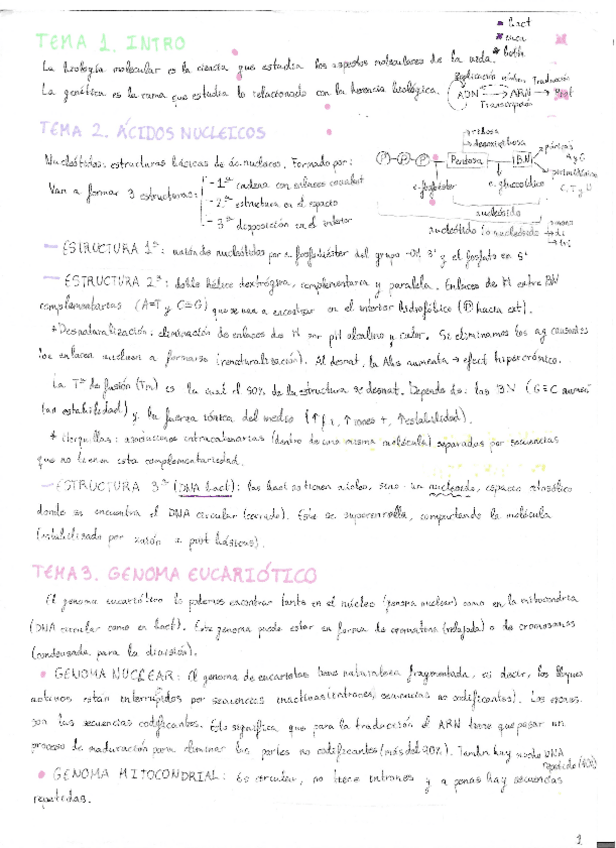 bact
euca
both
TEMA 1. INTRO
La biología molecular es la ciencia que estudia los aspectos moleculares de la vida.
La genética es la rama que estudia lo relacionado con la herencia biológica.
Replicación Traducción
ADN ARN Prot
Transcripción
TEMA 2. ÁCIDOS NUCLEICOS
Nucleótidos: estructuras básicas de ác. nucleicos. Formado por:
Van a formar 3 estructuras:
- 1ª cadena con enlaces covalent
- 2ª estructura en el espacio
- 3ª disposición en el interior
ribosa
desoxirribosa
P P P Pentosa BN
púricas
A y G
pirimidínicas
C, T y U
e. fosfodiéster e. glucosídico
nucleósido
nucleótido (o nucleósido
mono
di
tri
— ESTRUCTURA 1ª: unión de nucleótidos por e. fosfodiéster del grupo -OH 3' y el fosfato en 5'
— ESTRUCTURA 2ª: doble hélice dextrógira, complementaria y paralela. Enlaces de H entre BN
complementarias (A=T y C≡G) que se van a encontrar en el interior hidrofóbico (P hacia ext).
* Desnaturalización: eliminación de enlaces de H por pH alcalino y calor. Si eliminamos los ag causantes
los enlaces vuelven a formarse (renaturalización). Al desnat, la Abs aumenta → efect hipercrómico.
La Tª de fusión (Tm) es la cual el 50% de la estructura se desnat. Depende de: las BN (G≡C
estabilidad) y la fuerza iónica del medio (↑f i, ↑iones +, ↑estabilidad).
* Horquillas: asociaciones intracatenarias (dentro de una misma molécula) separadas por secuencias
que no tienen esta complementariedad.
— ESTRUCTURA 3ª (DNA bact): las bact no tienen núcleo, sino un nucleoide, espacio
donde se encuentra el DNA circular (cerrado). Este se superenrolla, compactando la molécula
(estabilizado por unión a prot básicas).
TEMA 3. GENOMA EUCARIÓTICO
El genoma eucariótico lo podemos encontrar tanto en el núcleo (genoma nuclear) como en la mitocondria
(DNA circular como en bact). Este genoma puede estar en forma de cromatina (relajada) o de cromosomas
(condensada para la división).
• GENOMA NUCLEAR: El genoma de eucariotas tiene naturaleza fragmentada, es decir, los bloques
activos están interrumpidos por secuencias inactivas (intrones, secuencias no codificantes). Los exones
son las secuencias codificantes. Esto significa que para la traducción el ARN tiene que pasar un
proceso de maduración para eliminar las partes no codificantes (más del 90%). También hay mucho DNA
repetido
• GENOMA MITOCONDRIAL: Es circular, no tiene intrones y a penas hay secuencias
repetidas.
1